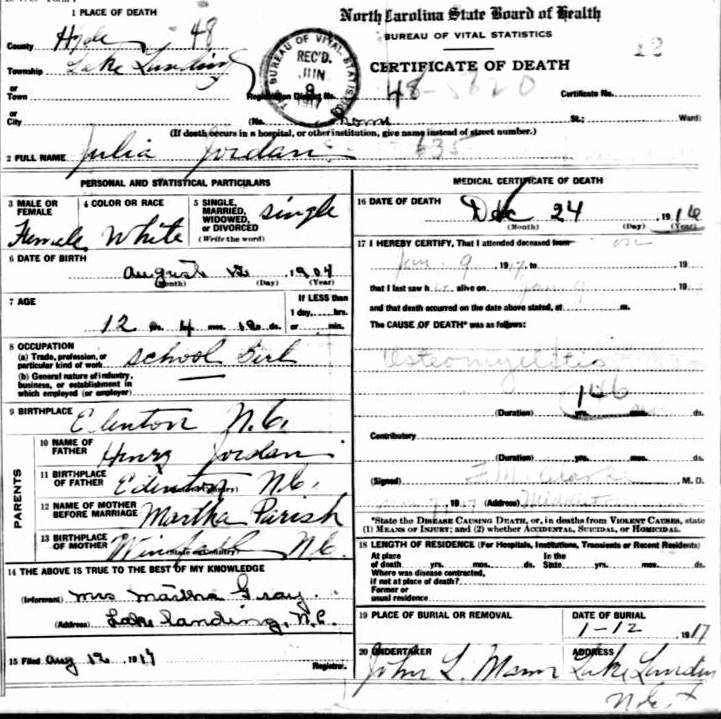 1 PLACE OF DEATH
County Hyde 48
Township Lake Landing
or
Town
or
City
North Carolina State Board of Health
BUREAU OF VITAL STATISTICS
CERTIFICATE OF DEATH
BUREAU OF VITAL STATISTICS
REC'D.
JUN
9
1917
Registration District No. 48-5620 Certificate No.
(No. home St.; Ward)
(If death occurs in a hospital, or other institution, give name instead of street number.)
2 FULL NAME Julia Jordan 635
PERSONAL AND STATISTICAL PARTICULARS
3 MALE OR FEMALE Female
4 COLOR OR RACE White
5 SINGLE, MARRIED, WIDOWED, or DIVORCED (Write the word) single
6 DATE OF BIRTH
August 12 1904
(Month) (Day) (Year)
7 AGE
12 yrs. 4 mos. 12 ds.
If LESS than
1 day, hrs.
or min.
8 OCCUPATION
(a) Trade, profession, or
particular kind of work School Girl
(b) General nature of industry,
business, or establishment in
which employed (or employer)
9 BIRTHPLACE Edenton N.C.
PARENTS
10 NAME OF FATHER Henry Jordan
11 BIRTHPLACE OF FATHER Edenton N.C.
12 NAME OF MOTHER BEFORE MARRIAGE Martha Parish
13 BIRTHPLACE OF MOTHER N.C.
14 THE ABOVE IS TRUE TO THE BEST OF MY KNOWLEDGE
(Informant) Mrs Martha Gray
(Address) Lake Landing, N.C.
15 Filed Aug 12 1917 Registrar.
MEDICAL CERTIFICATE OF DEATH
16 DATE OF DEATH Dec 24 1916
(Month) (Day) (Year)
17 I HEREBY CERTIFY, That I attended deceased from on
Jan. 9 1917, to 19
that I last saw h alive on Jan. 9 19
and that death occurred on the date above stated, at m.
The CAUSE OF DEATH* was as follows:
Osteomyelitis
146
(Duration) yrs. mos. ds.
Contributory
(Duration) yrs. mos. ds.
(Signed) M. D.
7, 1917 (Address)
*State the DISEASE CAUSING DEATH, or, in deaths from VIOLENT CAUSES, state
(1) MEANS OF INJURY; and (2) whether ACCIDENTAL, SUICIDAL, or HOMICIDAL.
18 LENGTH OF RESIDENCE (For Hospitals, Institutions, Transients or Recent Residents)
At place of death yrs. mos. ds. In the State yrs. mos. ds.
Where was disease contracted,
if not at place of death?
Former or
usual residence
19 PLACE OF BURIAL OR REMOVAL
DATE OF BURIAL
1-12 1917
20 UNDERTAKER
John L. Mann
ADDRESS
Lake Landing
N.C.